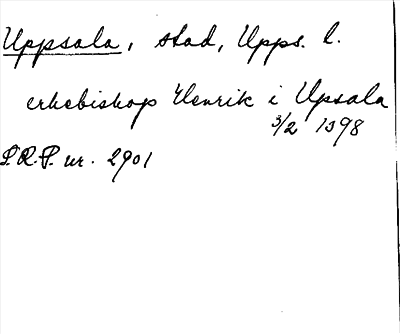 Uppsala, stad, Upps. l.
erkebiskop Henrik i Upsala
3/2 1398
S.R.P. nr. 2901